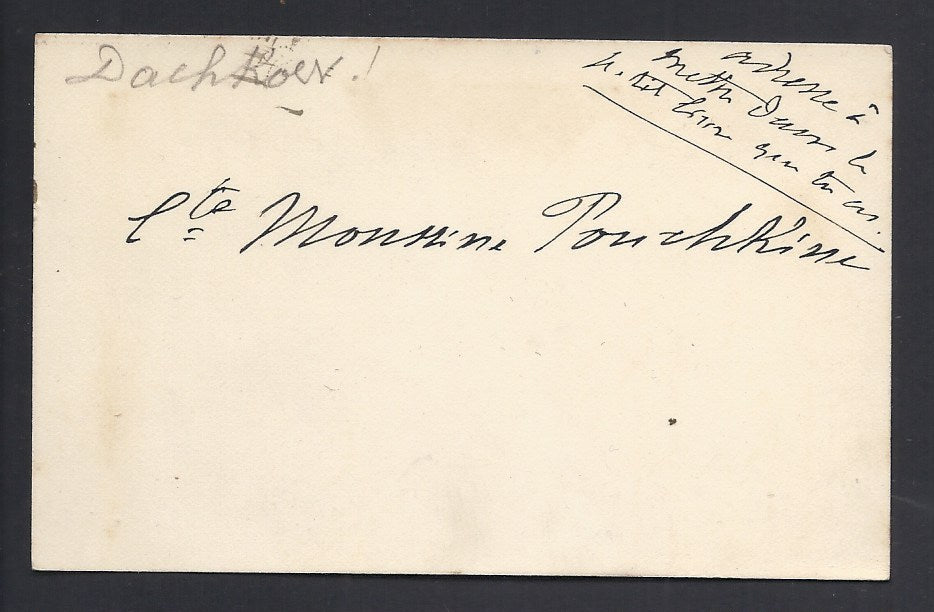 Dachkov!
adresse à
mettre dans le
p. tit livre que tu as.
Cte Moussine Pouchkine